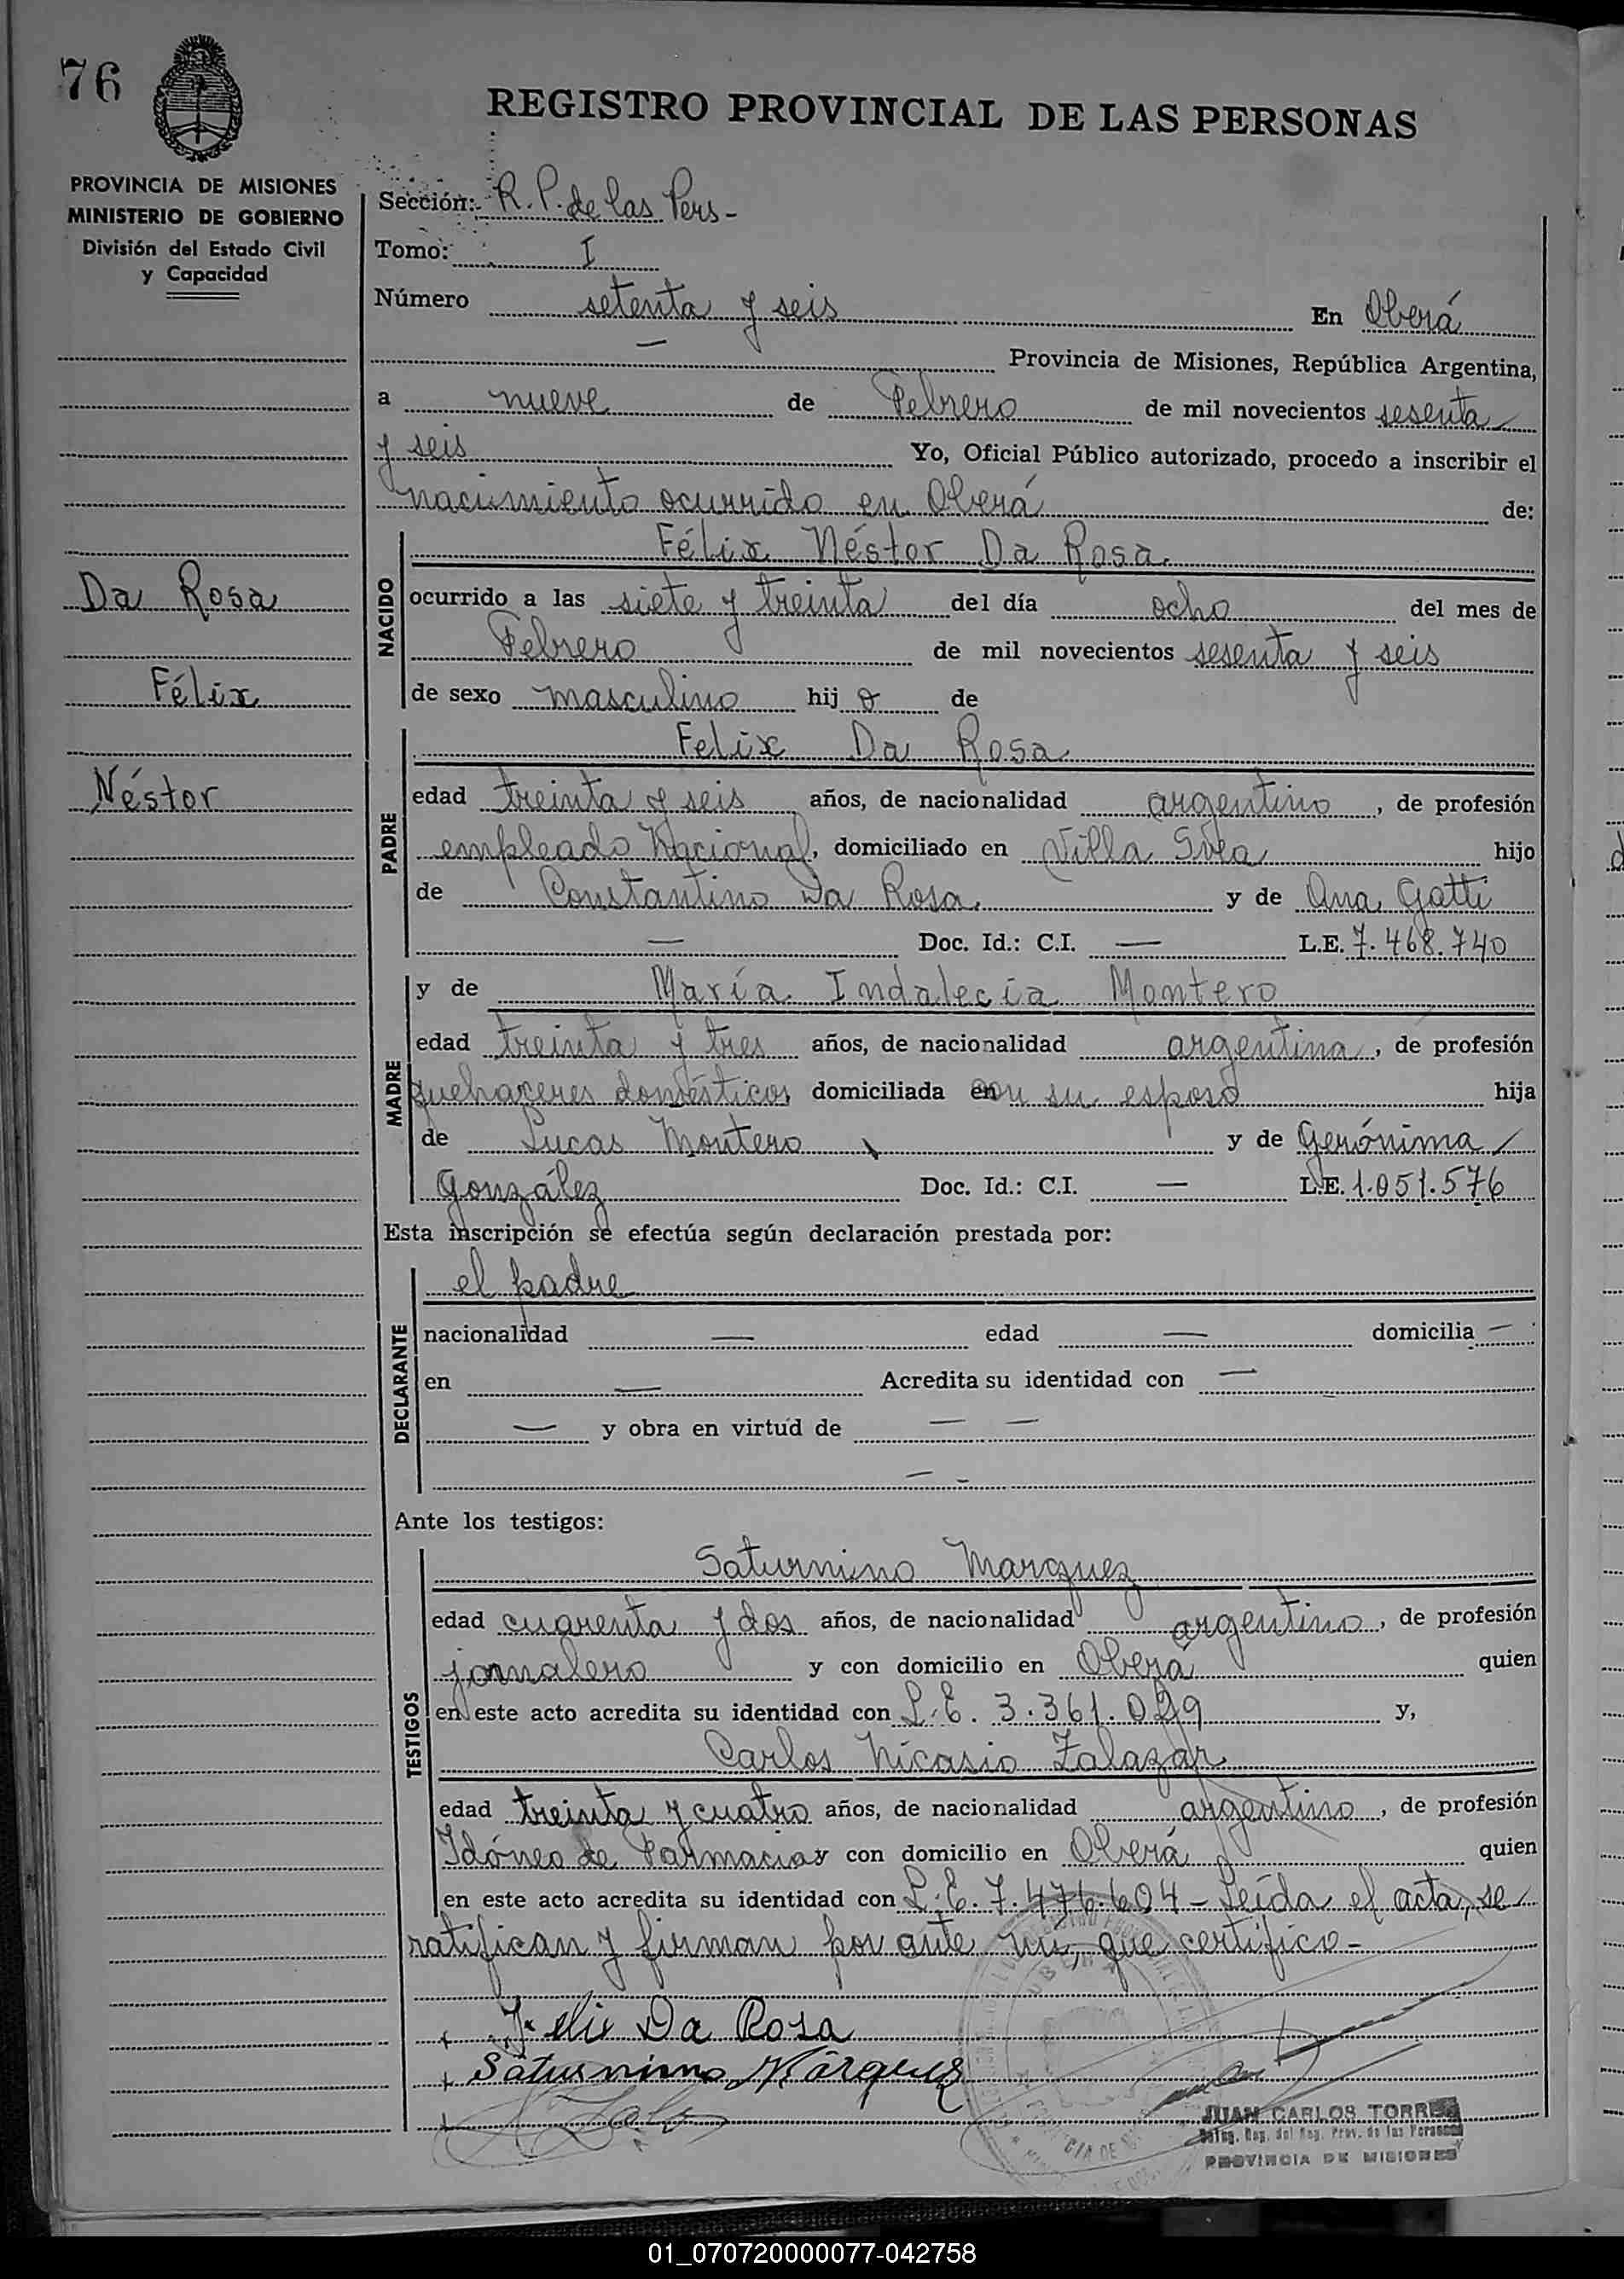 76
REGISTRO PROVINCIAL DE LAS PERSONAS
PROVINCIA DE MISIONES
MINISTERIO DE GOBIERNO
División del Estado Civil
y Capacidad
Sección: R. P. de las Pers -
Tomo: I
Número setenta y seis En Oberá
— Provincia de Misiones, República Argentina,
a nueve de Febrero de mil novecientos sesenta
y seis Yo, Oficial Público autorizado, procedo a inscribir el
nacimiento ocurrido en Oberá de:
Da Rosa
Félix
Néstor
NACIDO
Félix Néstor Da Rosa
ocurrido a las siete y treinta del día ocho del mes de
Febrero de mil novecientos sesenta y seis
de sexo masculino hij o de
PADRE
Felix Da Rosa
edad treinta y seis años, de nacionalidad argentino, de profesión
empleado Nacional, domiciliado en Villa Svea hijo
de Constantino Da Rosa y de Ana Gatti
— Doc. Id.: C.I. — L.E. 7.468.740
MADRE
y de María Indalecia Montero
edad treinta y tres años, de nacionalidad argentina, de profesión
quehaceres domésticos domiciliada con su esposo hija
de Lucas Montero y de Gerónima
González Doc. Id.: C.I. — L.E. 1.051.576
Esta inscripción se efectúa según declaración prestada por:
DECLARANTE
el padre
nacionalidad — edad — domicilia —
en — Acredita su identidad con —
— y obra en virtud de — —
— -
Ante los testigos:
TESTIGOS
Saturnino Marquez
edad cuarenta y dos años, de nacionalidad argentino, de profesión
jornalero y con domicilio en Oberá quien
en este acto acredita su identidad con L.E. 3.361.029 y,
Carlos Nicasio Zalazar
edad treinta y cuatro años, de nacionalidad argentino, de profesión
Idóneo de Farmacia y con domicilio en Oberá quien
en este acto acredita su identidad con L.E. 7.476.604 - Leída el acta, se
ratifican y firman por ante mí, que certifico -
+ Felix Da Rosa
+ Saturnino Márquez
+
OBERA
JUAN CARLOS TORRES
Deleg. Reg. del Reg. Prov. de las Personas
PROVINCIA DE MISIONES
01_070720000077-042758